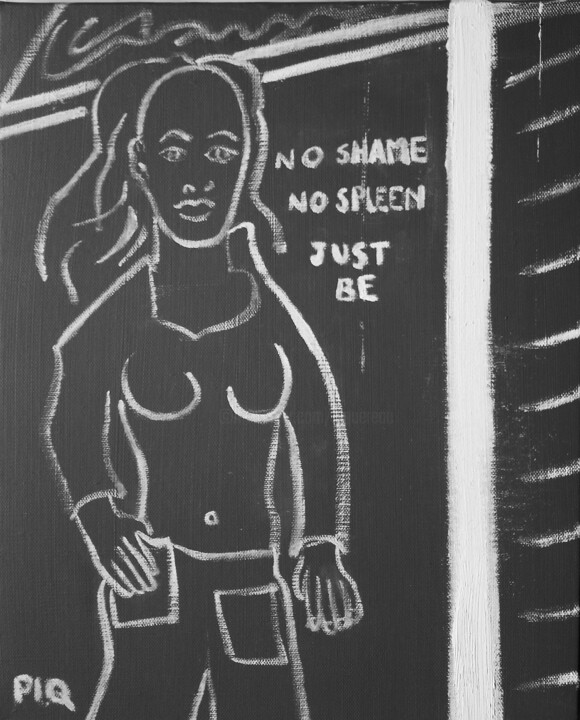 NO SHAME
NO SPLEEN
JUST
BE
PIQ